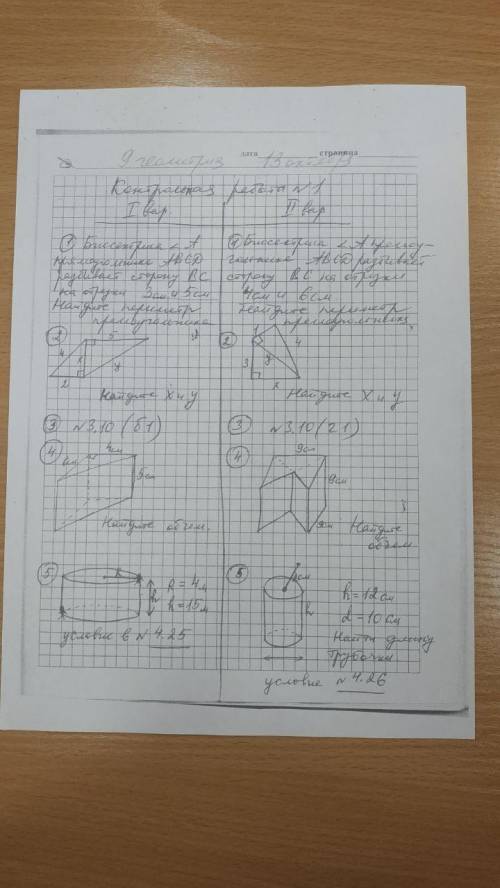 дата страница
9 геометрия 13 октября
Контрольная работа №1
I вар.
① Биссектриса ∠ А
прямоугольника ABCD
разбивает сторону BC
на отрезки 3см 45см
Найдите периметр
прямоугольника
②
5
4
x
y
2
Найдите X и y
③ №3.10 (б1)
④
4см
6см
9см
Найдите объем.
⑤
R
h
R = 4м
h = 15м
условие в № 4.25
II вар
① Биссектриса ∠ А прямоу-
гольника ABCD разбивает
сторону BC на отрезки
4см и 6см
Найдите периметр
прямоугольника.
②
1
4
3
y
x
Найдите X и y
③ №3.10 (г1)
④
9см
9см
9см
Найдите
объем
⑤
h
h = 12см
d = 10см
Найти длину
трубочки
условие №4.26